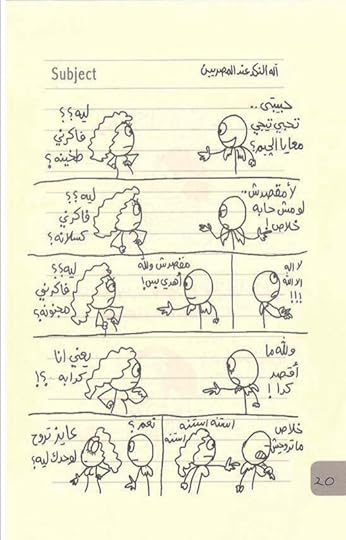 Subject
آله النكد عند المصريين
حبيبتي ..
تحبي تيجي
معايا الچيم؟
ليه؟؟
فاكرني
طخينه؟
لأ مقصدش ..
لو مش حابه
خلاص!
ليه؟؟
فاكرني
كسلانه؟
لا اله
الا الله
!!!
مقصدش والله
أهدي بس!
ليه؟؟
فاكرني
مجنونه؟
والله ما
أقصد
كدا!
يعني انا
كدابه ؟!
خلاص
ماتروحيش
استنه استنه
استنه
نعم؟
عايز تروح
لوحدك ليه؟
20